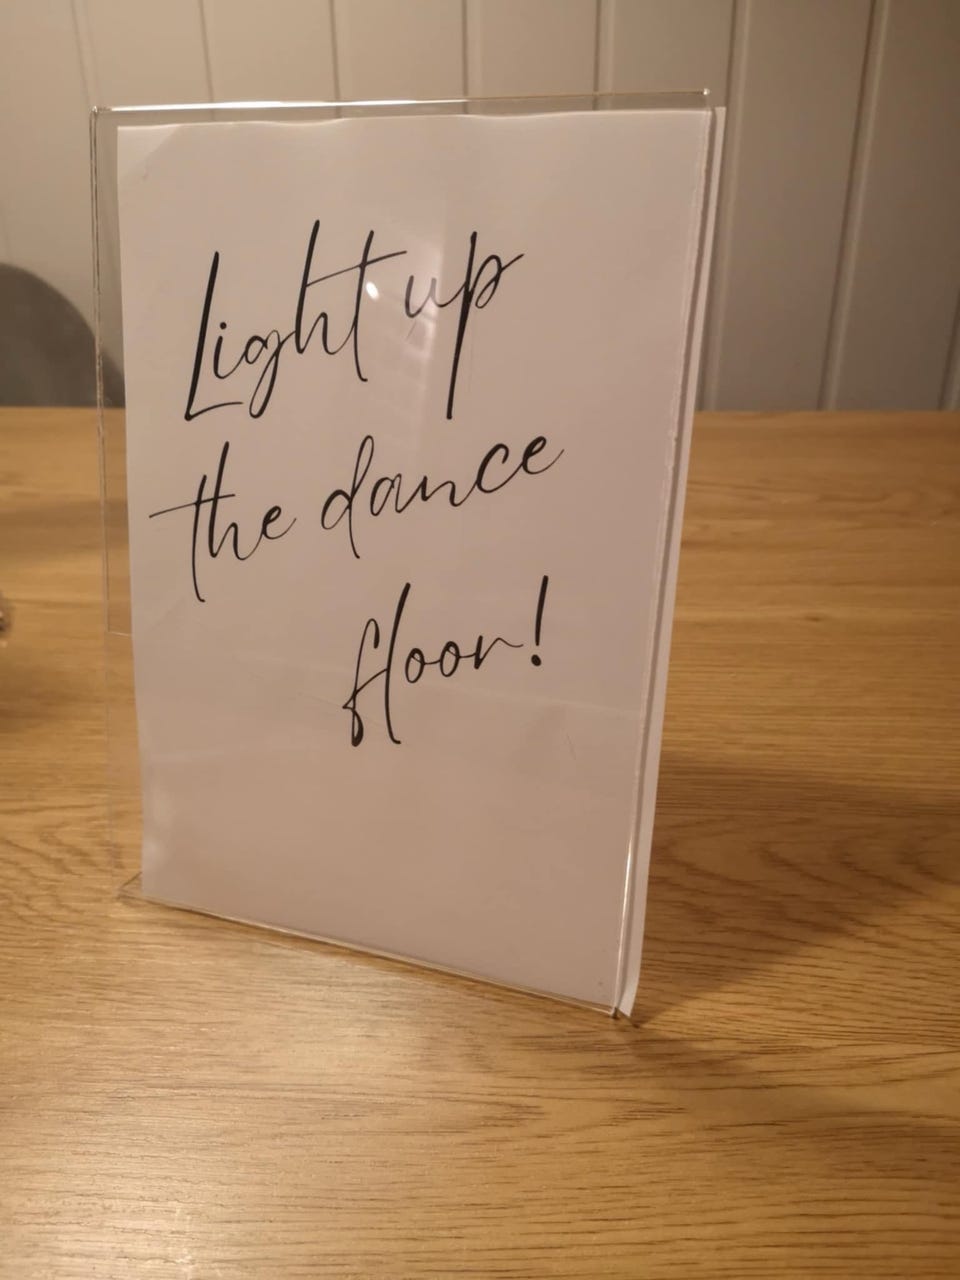 Light up
the dance
floor!